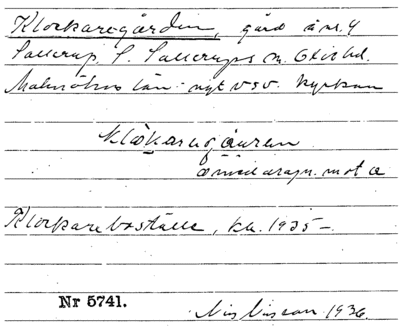 Klockaregården, gård å nr. 4
Sallerup, S. Sallerups sn. Oxie hd.
Malmöhus län: nyk VSV. kyrkan
klåkaragåuren
å med dragn. mot a
Klockareboställe, kk. 1935 –
Nr 5741.
Nils Nilsson 1936.